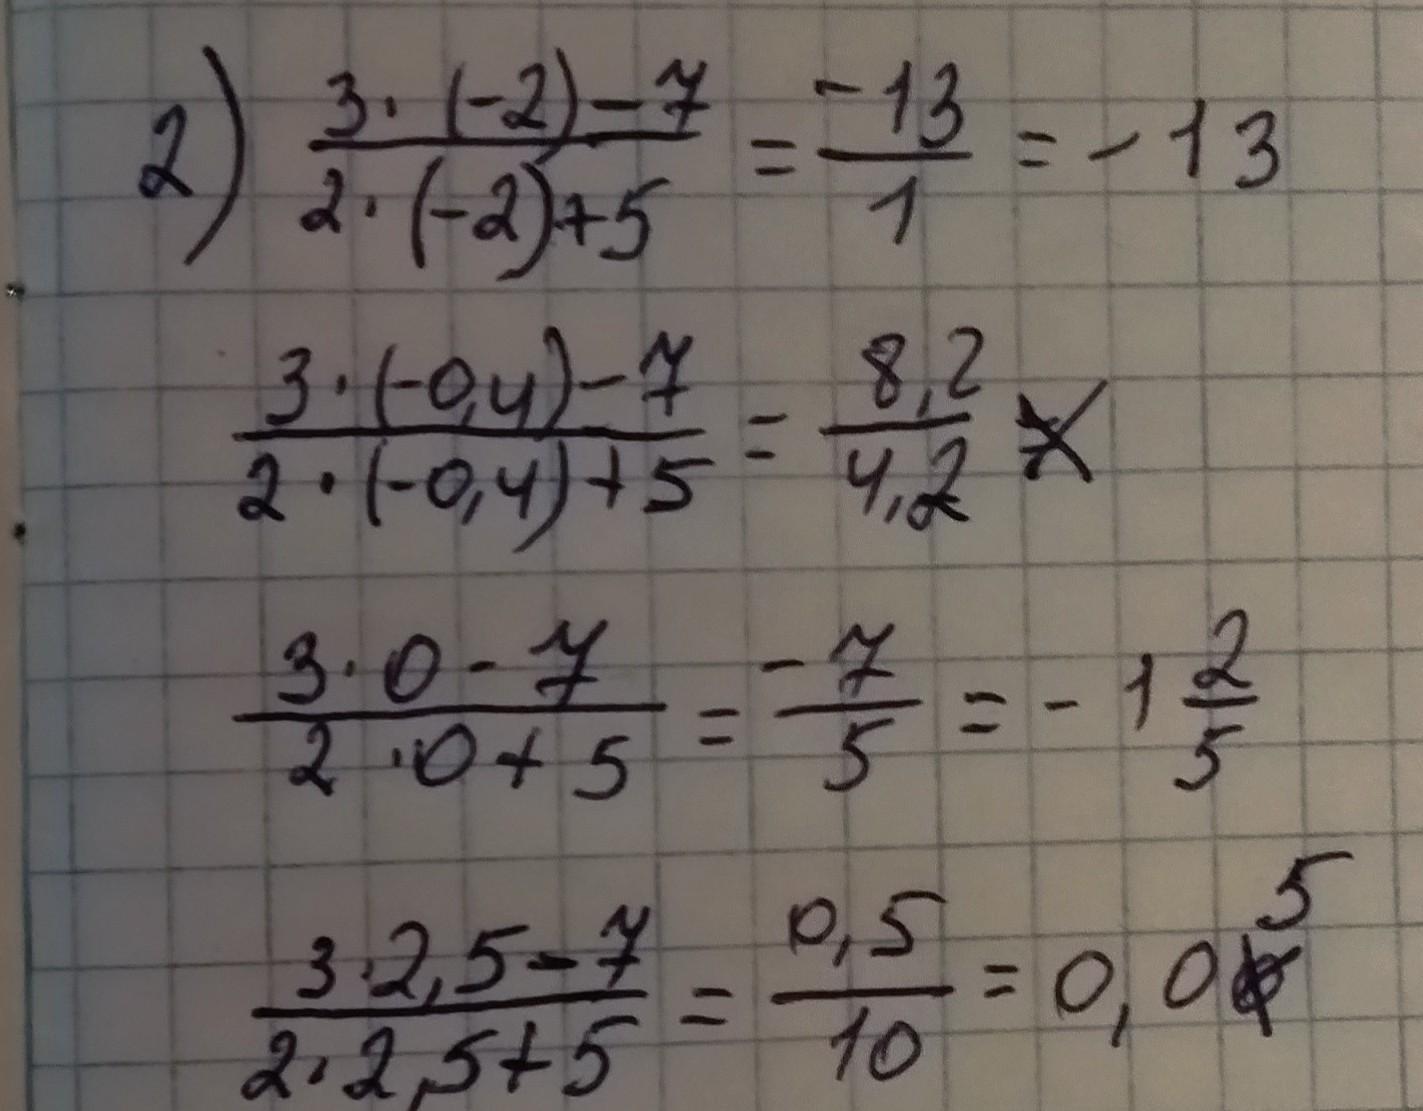 2) 3·(-2)-7 / 2·(-2)+5 = -13 / 1 = -13
3·(-0,4)-7 / 2·(-0,4)+5 = 8,2 / 4,2
3·0-7 / 2·0+5 = -7 / 5 = -1 2/5
3·2,5-7 / 2·2,5+5 = 0,5 / 10 = 0,05